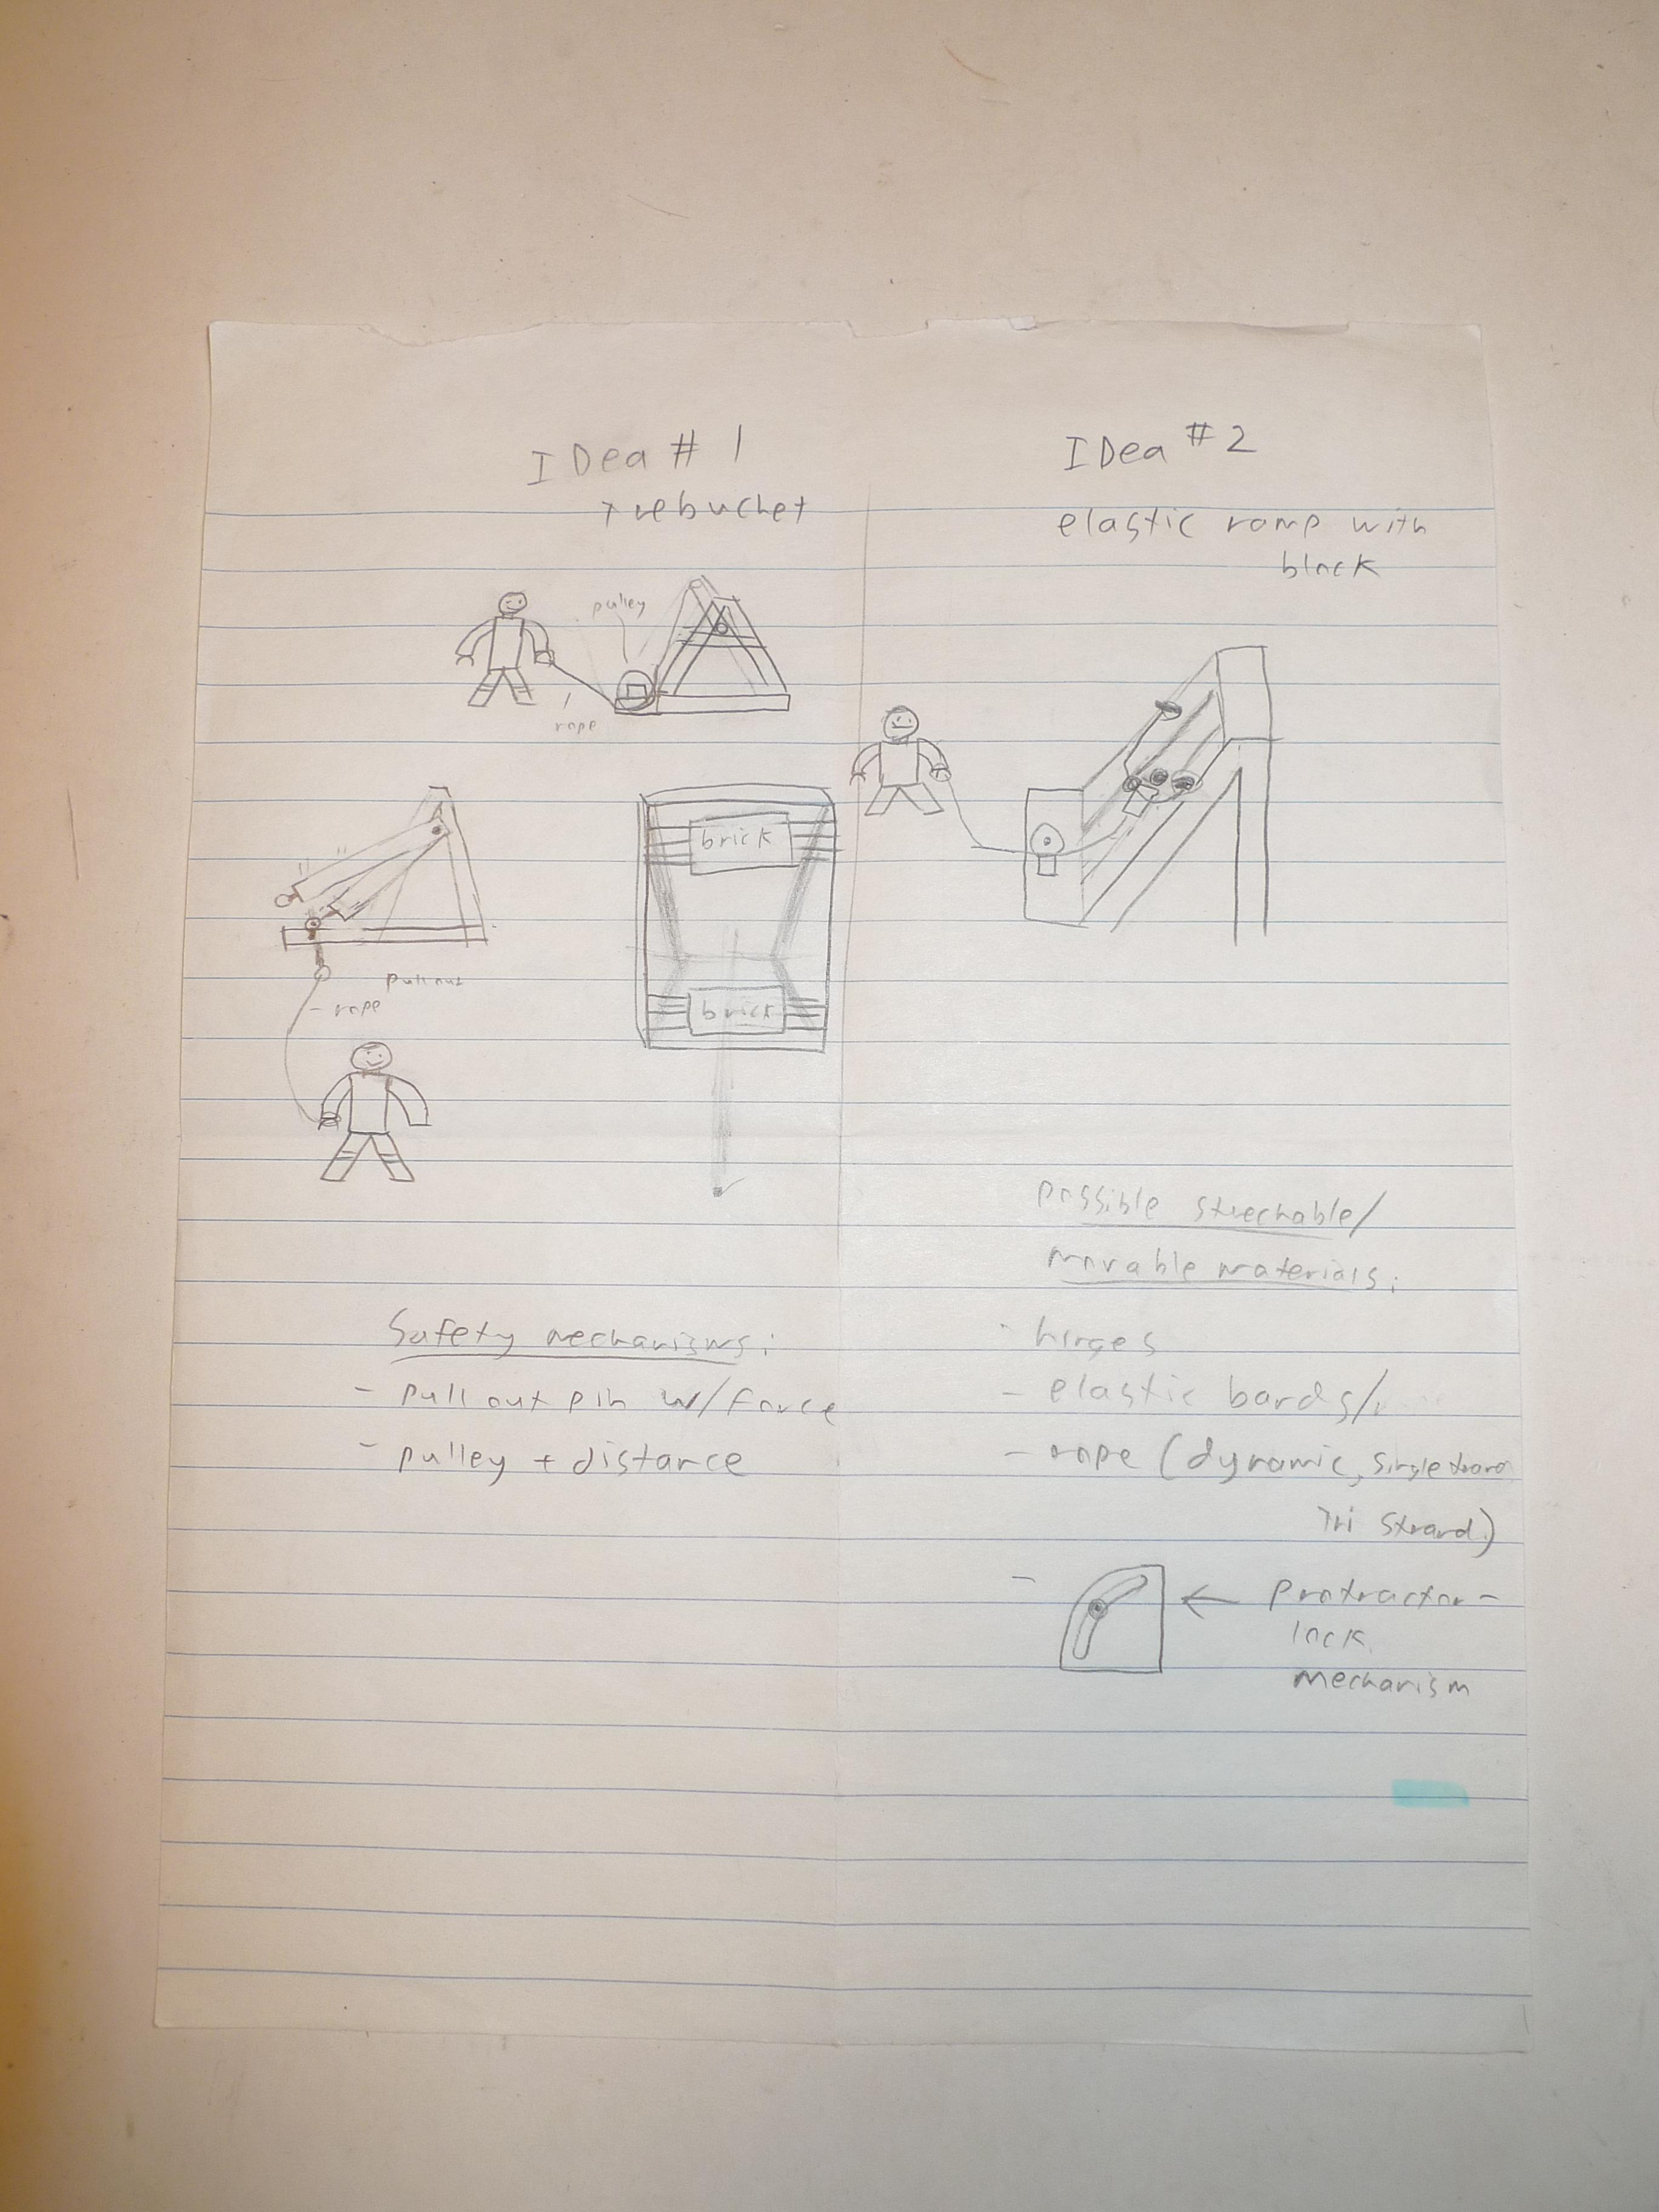 IDea # 1
trebuchet
pulley
rope
brick
brick
pull out
rope
Safety mechanisms:
- pull out pin w/ force
- pulley + distance
IDea #2
elastic ramp with
block
possible strechable/
movable materials:
- hinges
- elastic bands/
- rope (dynamic, single strand
Tri strand)
-
Protractor-
lock
mechanism